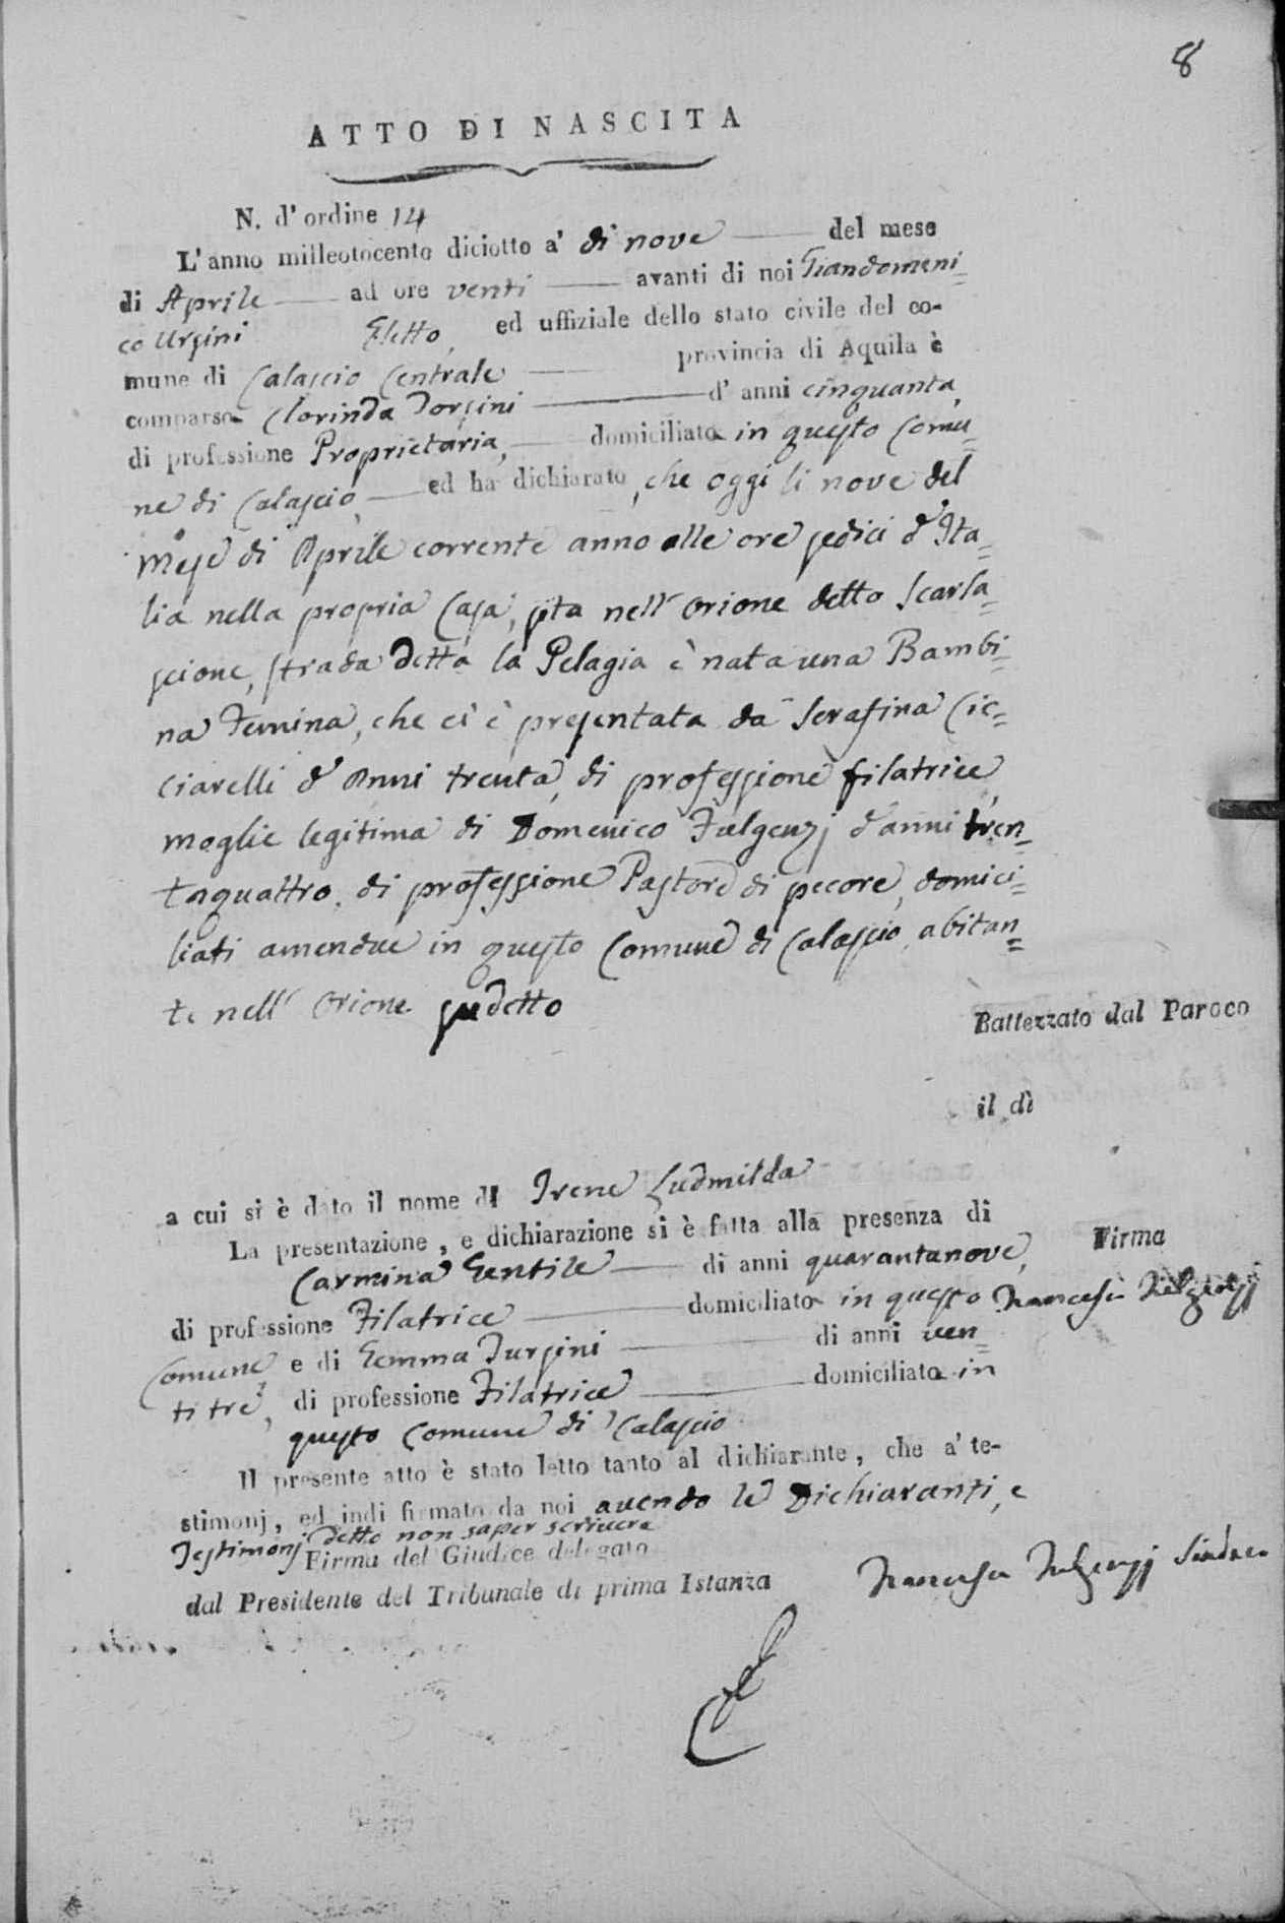 8
ATTO DI NASCITA
N. d'ordine 14
L'anno milleotocento diciotto a' di nove del mese
di Aprile ad ore venti avanti di noi Giandomeni=
co Ursini Eletto, ed uffiziale dello stato civile del co-
mune di Calascio Centrale provincia di Aquila è
comparsa Clorinda d' anni cinquanta,
di professione Proprietaria, domiciliata in questo Comu=
ne di Calascio, ed ha dichiarato, che oggi li nove del
mese di Aprile corrente anno alle ore sedici d'Ita=
lia nella propria Casa, sita nell'Orione detto Scarla=
scione, strada detta la Pelagia è nata una Bambi=
na Femina, che ci è presentata da Serafina Cic=
ciarelli d'Anni trenta, di professione filatrice,
moglie legitima di Domenico Fulgenzj d'anni tren=
taquattro, di professione Pastore di pecore, domici=
liati amendue in questo Comune di Calascio, abitan=
te nell'Orione sudetto
Battezzato dal Paroco
il dì
a cui si è dato il nome di Irene Ludmilda
La presentazione, e dichiarazione si è fatta alla presenza di
Carmina Gentile di anni quarantanove,
di professione Filatrice domiciliata in questo
Comune e di Gemma di anni ven=
titre, di professione Filatrice domiciliata in
questo Comune di Calascio
Firma
Il presente atto è stato letto tanto al dichiarante, che a' te-
stimonj, ed indi firmato da noi avendo le Dichiaranti, e
Testimonj detto non saper scrivere
Firma del Giudice delegato
dal Presidente del Tribunale di prima Istanza
Fulgenzj Sindaco